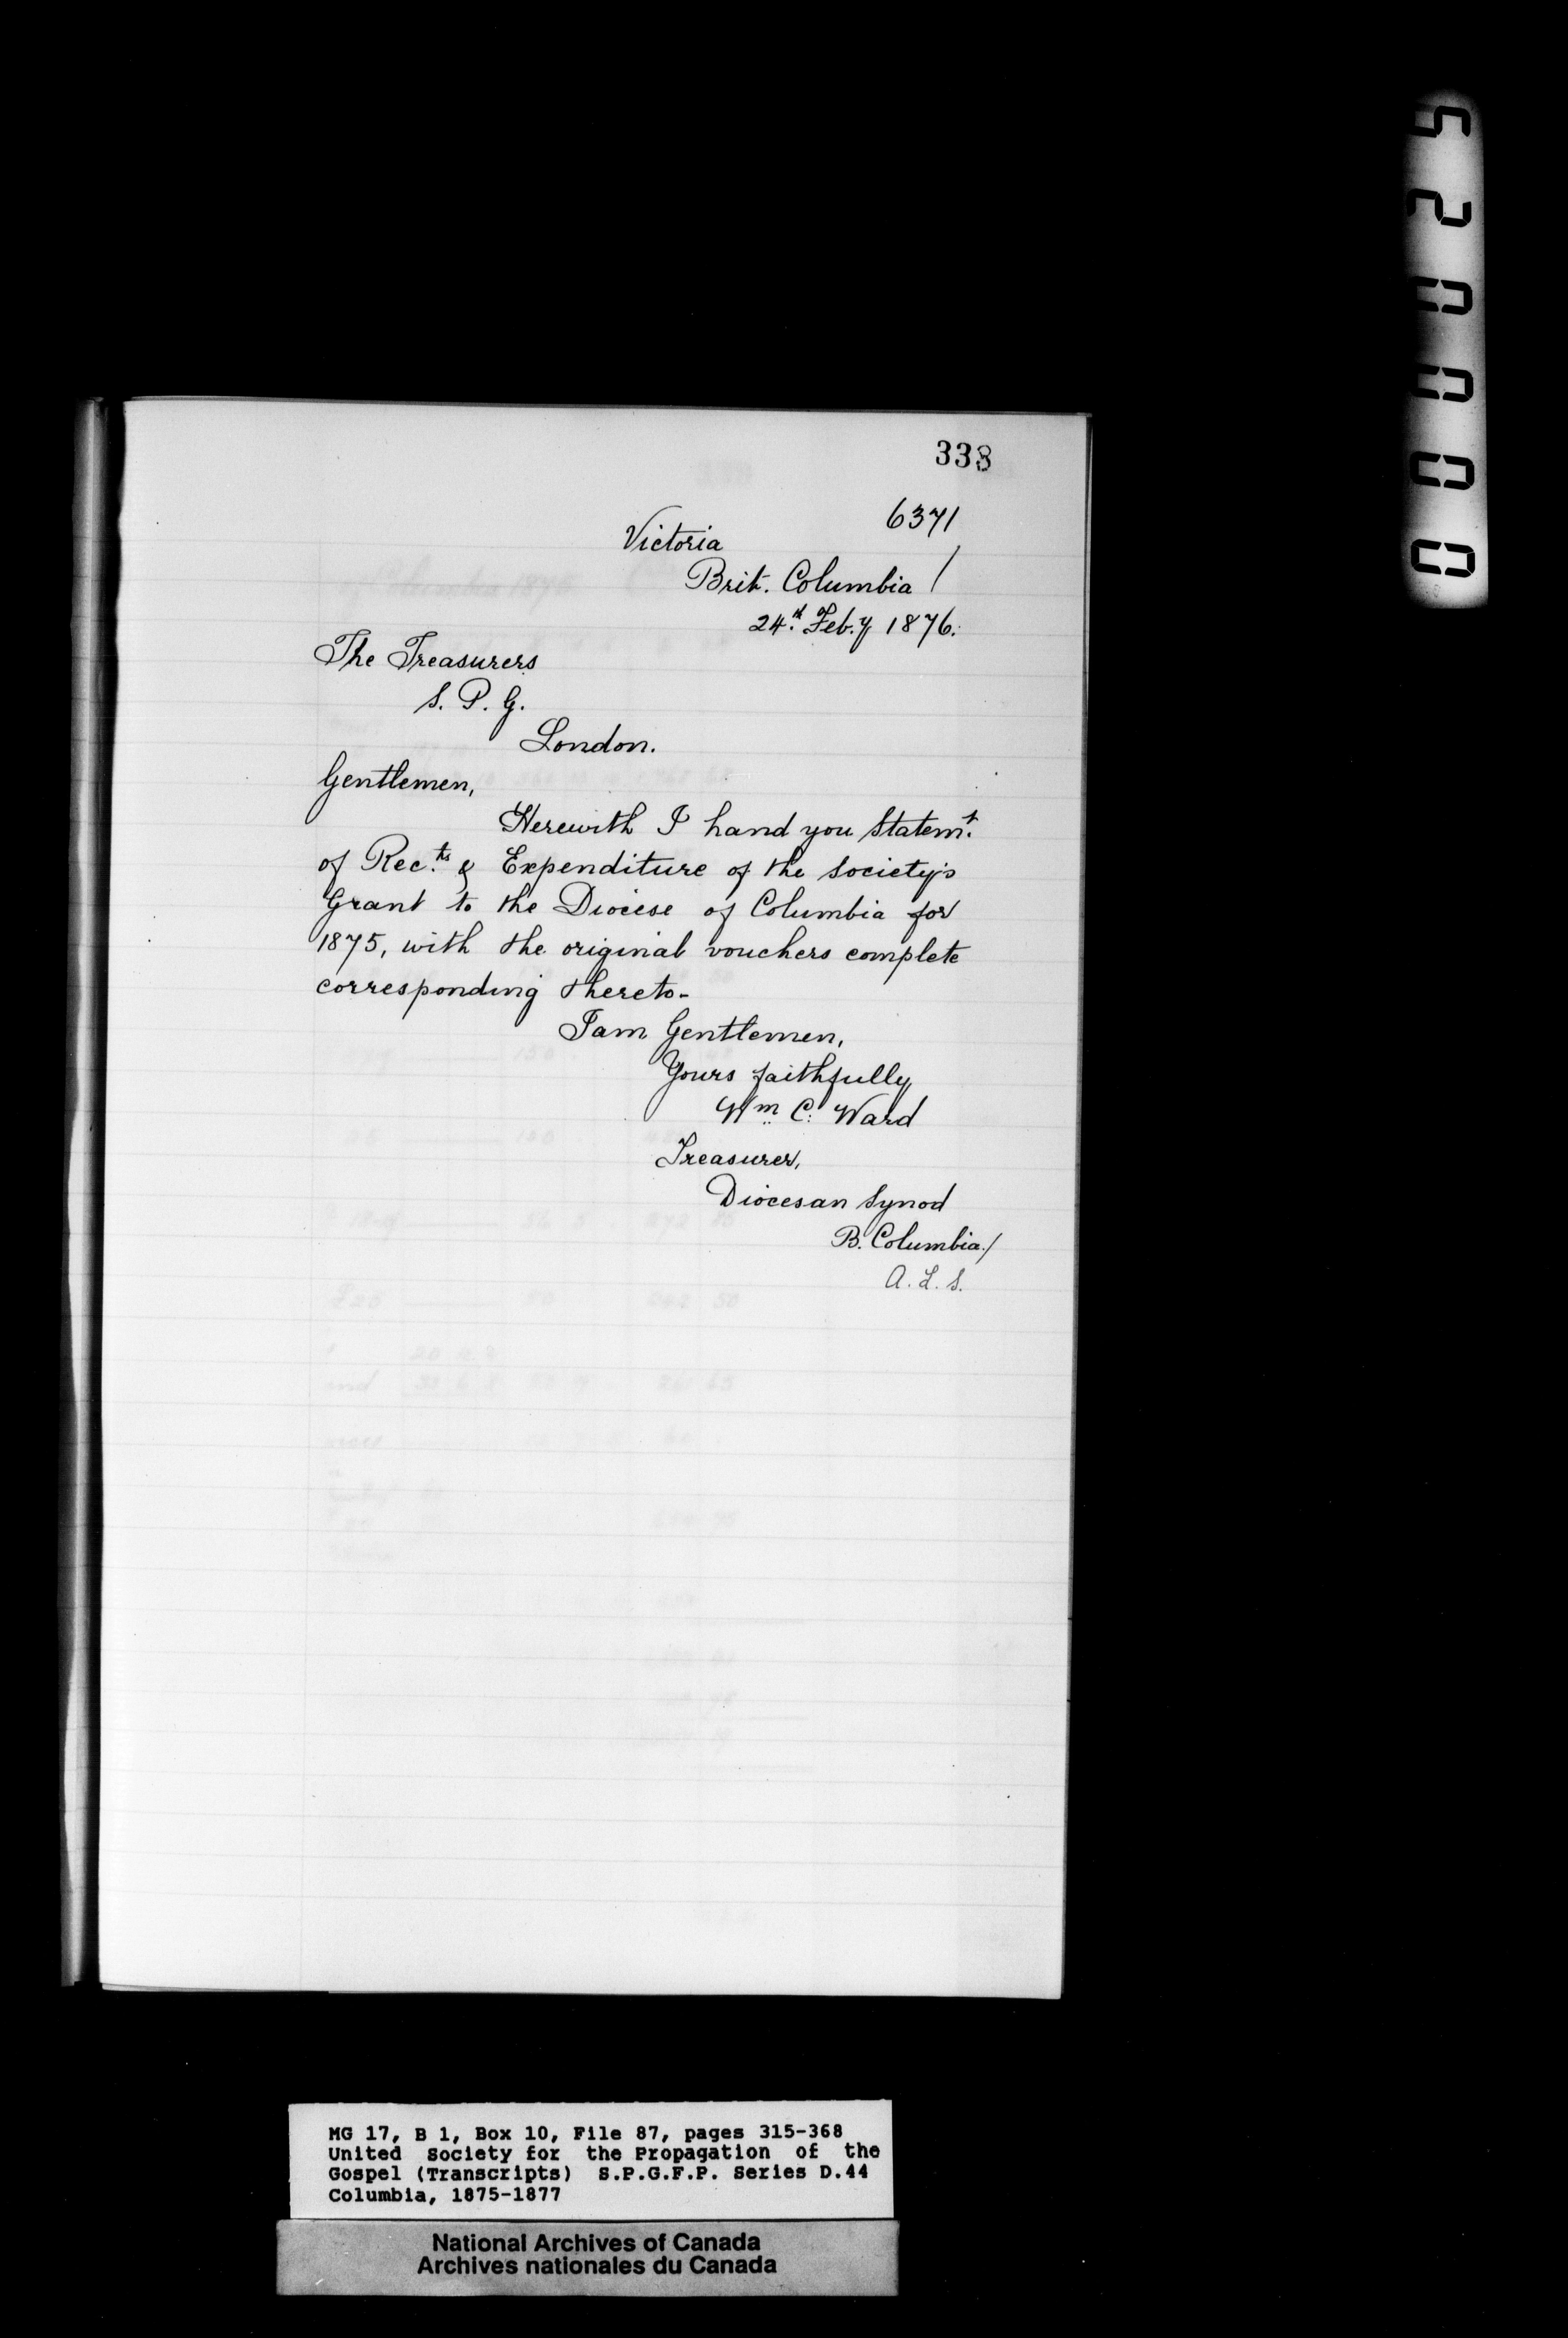 520000
338
6371
Victoria
Brit. Columbia /
24.th Feb.y 1876.
The Treasurers
S. P. G.
London.
Gentlemen,
Herewith I hand you Statem.t
of Rec.ts & Expenditure of the Society's
Grant to the Diocese of Columbia for
1875, with the original vouchers complete
corresponding thereto-
I am Gentlemen,
Yours faithfully
Wm C: Ward
Treasurer,
Diocesan Synod
B. Columbia./
A. L. S.
MG 17, B 1, Box 10, File 87, pages 315-368
United Society for the Propagation of the
Gospel (Transcripts) S.P.G.F.P. Series D.44
Columbia, 1875-1877
National Archives of Canada
Archives nationales du Canada